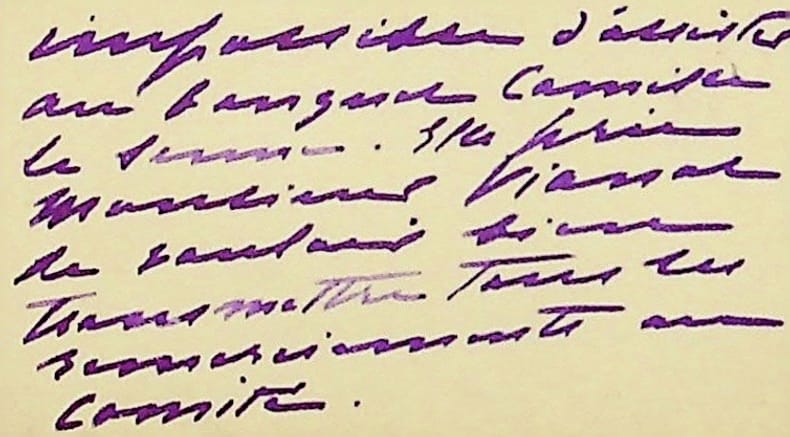 impossible d'assister
au banquet Camille
le Senne. Elle prie
Monsieur
de vouloir bien
transmettre tous ses
remerciements au
Comité.